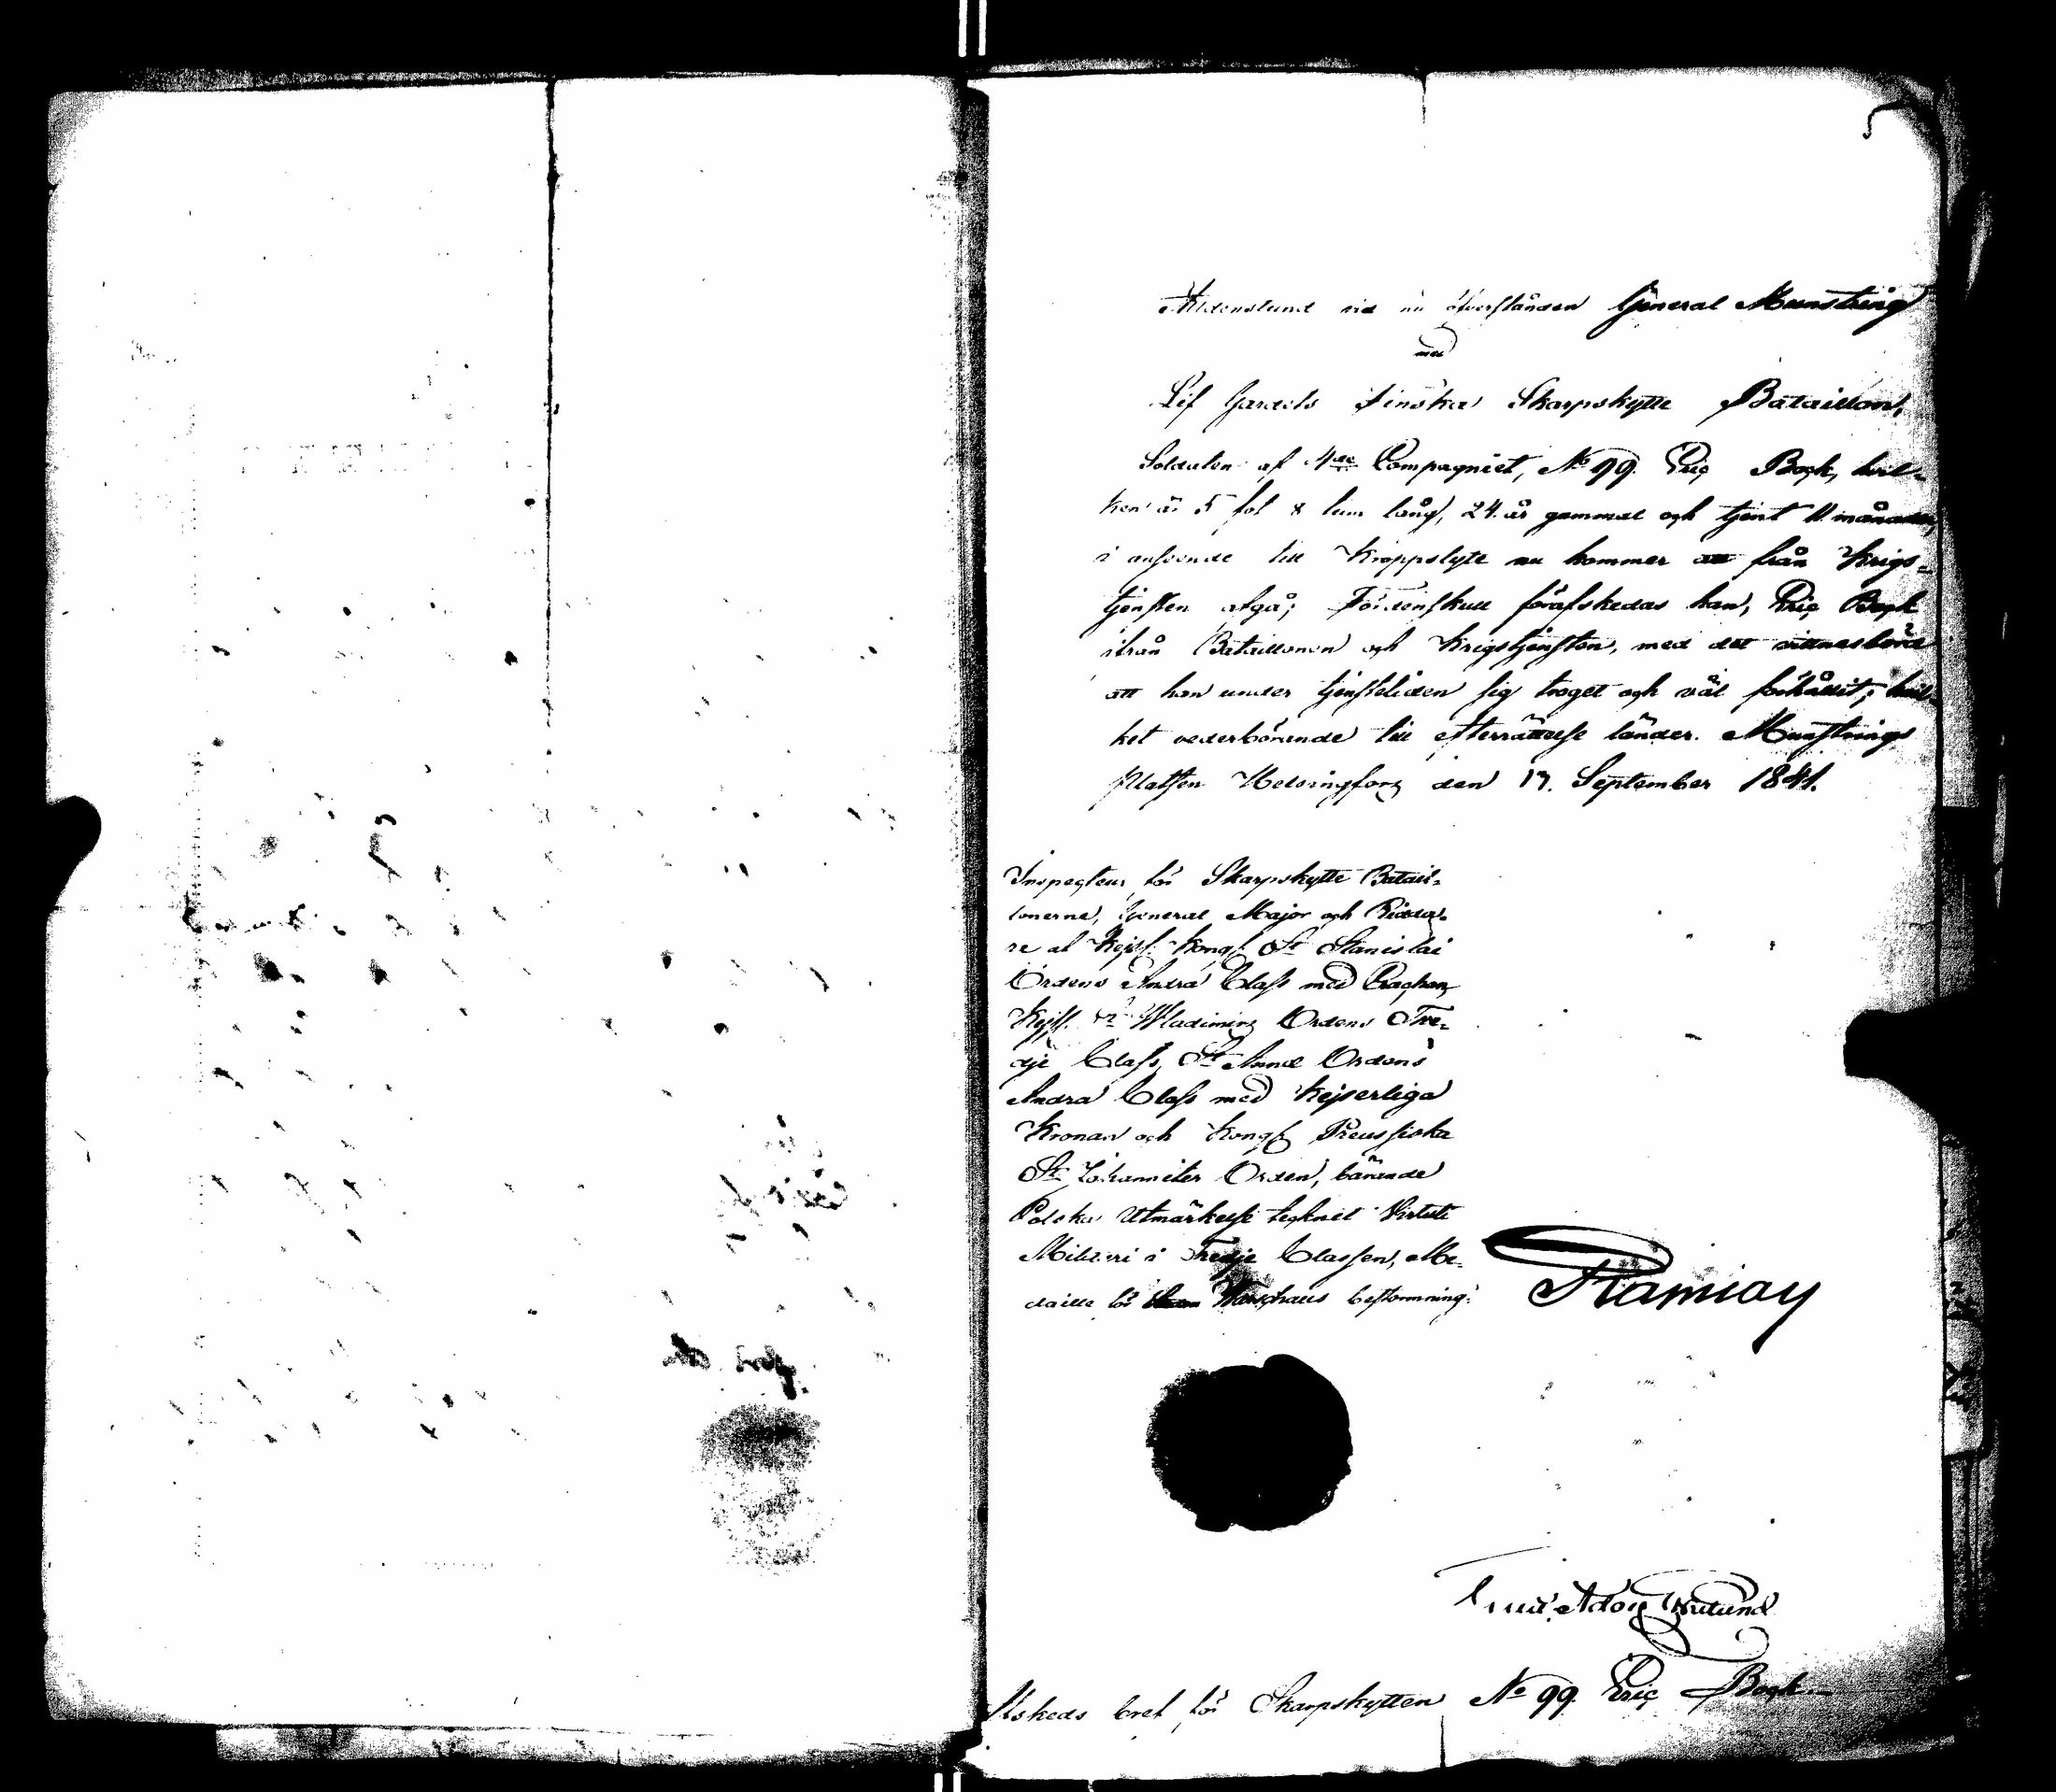 Aldenstund vid nu öfverstånden General Munstring
med
Lif Gardets Finska Skarpskytte Bataillon,
Soldaten af 4de Compagniet, No 99. Eric Bock, hvil-
ken är 5 fot 8 tum lång, 24. år gammal och tjent 11. månader,
i anseende till Kroppslyte nu kommer att från Krigs-
tjensten afgå; Fördenskull förafskedas han, Eric Bock
ifrån Bataillonen och Krigstjensten, med det vittnesbörd
att han under tjenstetiden sig troget och väl förhållit; hvil-
ket vederbörande till efterrättelse länder. Munstrings
Platsen Helsingfors den 17. September 1841.
Inspecteur för Skarpskytte Batail-
lonerne, General Major och Ridda-
re af Kejs. Kongl. St Stanislai
Ordens Andra Class med Crachan,
Kejs. St Wladimirs Ordens Tre-
dje Class, St Annæ Ordens
Andra Class med Kejserliga
Kronan och Kongl. Preussiska
St Johanniter Orden, bärande
Polska Utmärkelse tecknet Virtuti
Militari i Tredje Classen, Me-
daille för Warschaus bestormning.
Ramsay
Afskeds bref för Skarpskytten No 99. Eric Bock.